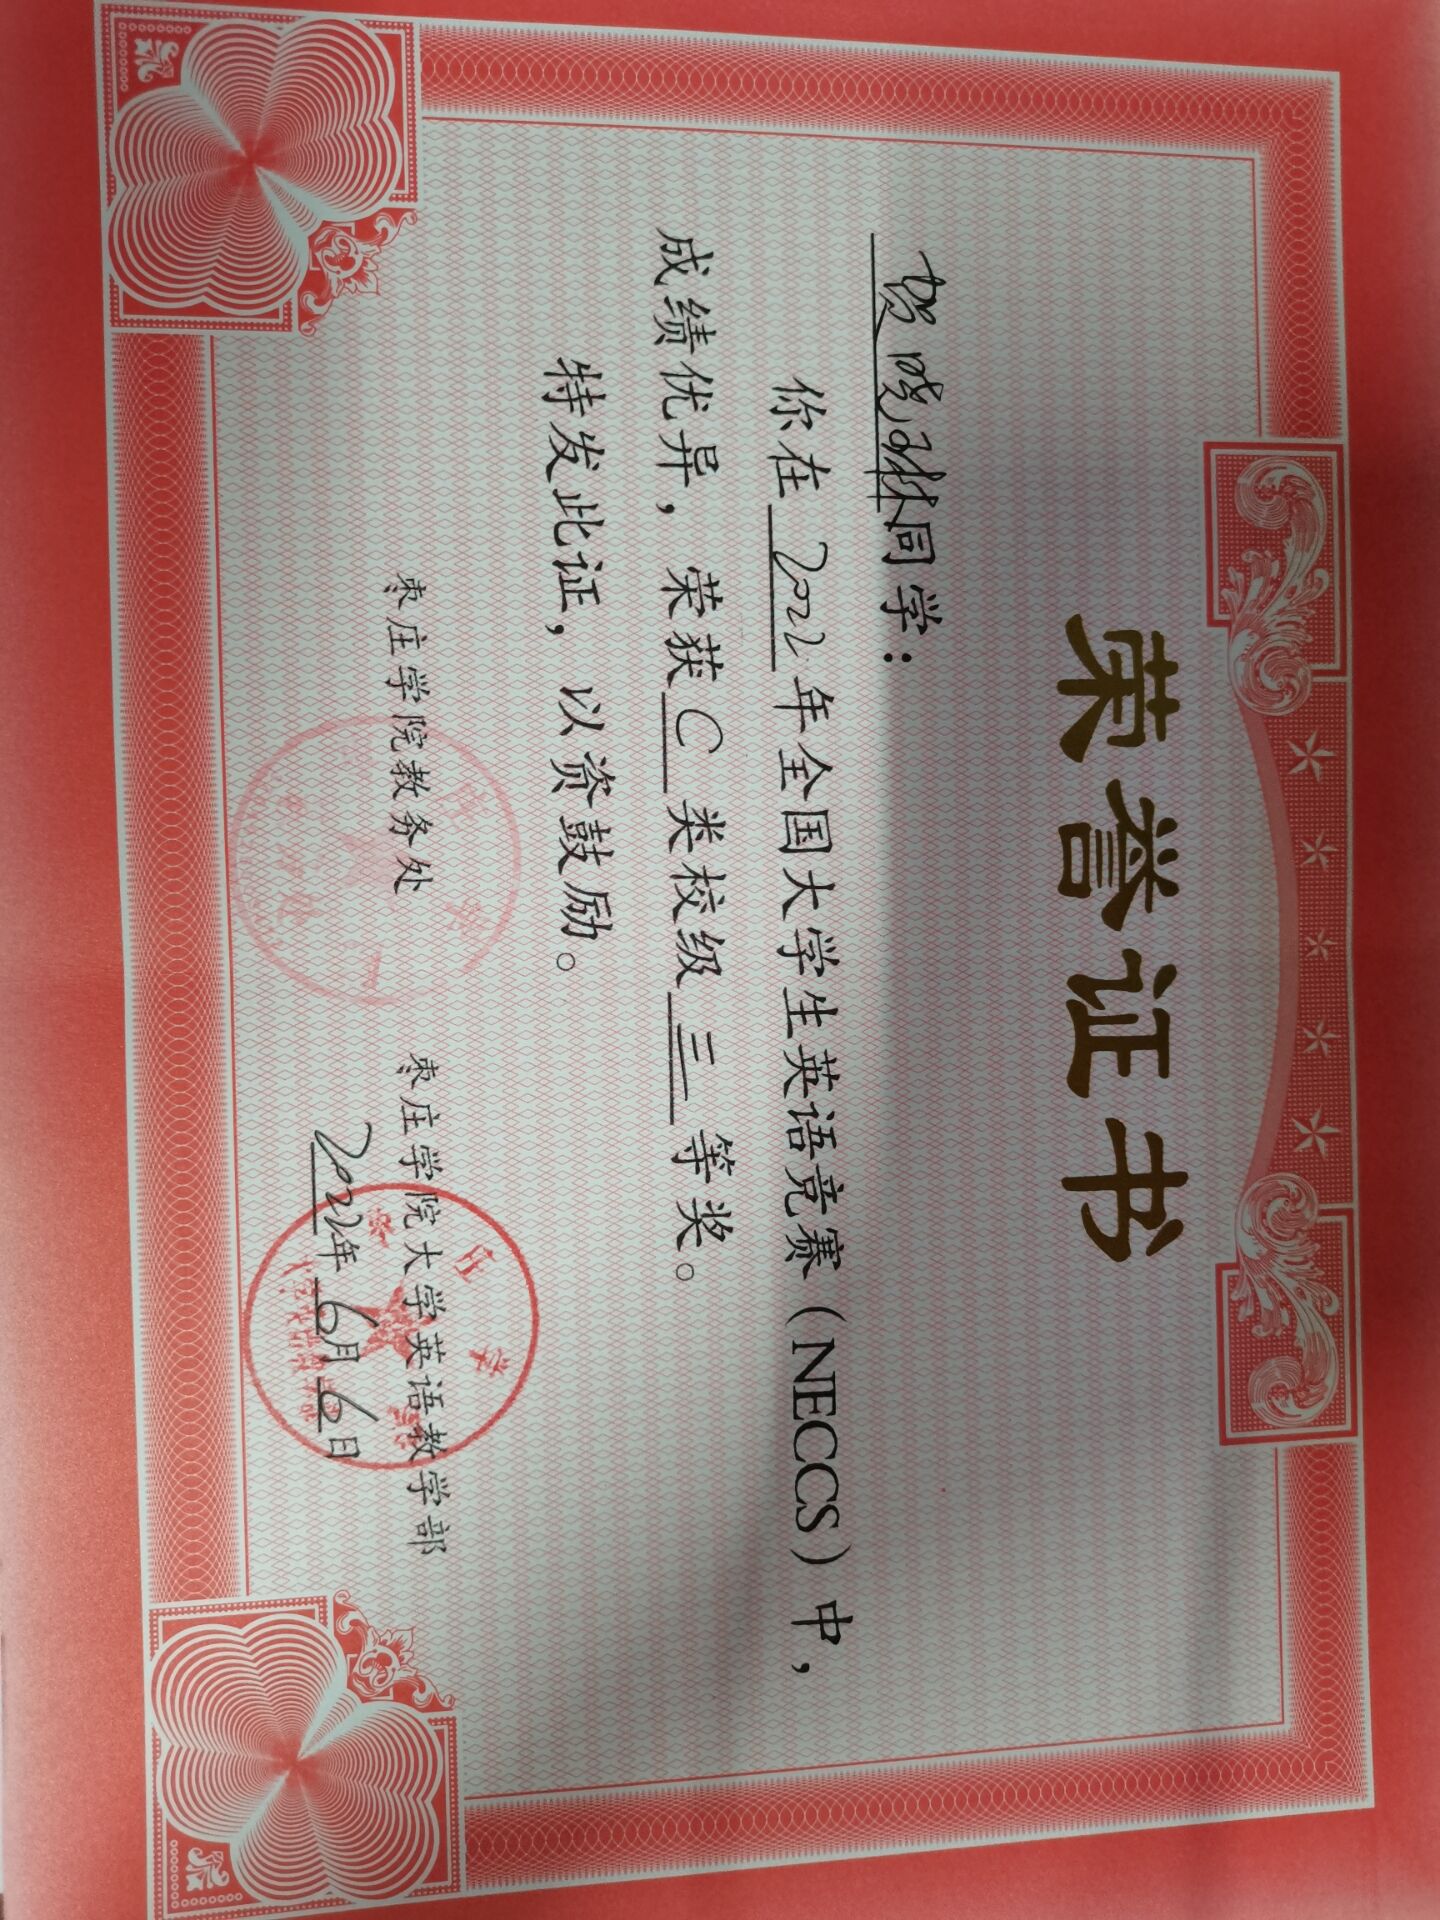 荣誉证书
贺晓琳同学：
你在2022年全国大学生英语竞赛（NECCS）中，
成绩优异，荣获C类校级三等奖。
特发此证，以资鼓励。
枣庄学院教务处 枣庄学院大学英语教学部
2022年6月6日